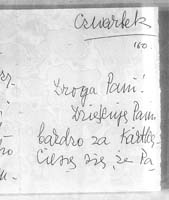 Czwartek
160.
Droga Pani!
Dziękuję Pani
bardzo za Kartkę
Cieszę się, że Pa-